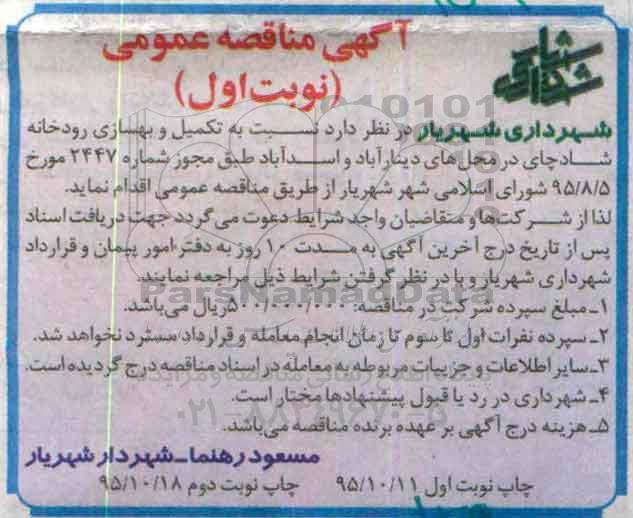 شهرداری شهریار
آگهی مناقصه عمومی
(نوبت اول)
شهرداری شهریار در نظر دارد نسبت به تکمیل و بهسازی رودخانه
شادچای در محل‌های دینارآباد و اسدآباد طبق مجوز شماره ۲۴۴۷ مورخ
۹۵/۸/۵ شورای اسلامی شهر شهریار از طریق مناقصه عمومی اقدام نماید.
لذا از شرکت‌ها و متقاضیان واجد شرایط دعوت می‌گردد جهت دریافت اسناد
پس از تاریخ درج آخرین آگهی به مدت ۱۰ روز به دفتر امور پیمان و قرارداد
شهرداری شهریار و با در نظر گرفتن شرایط ذیل مراجعه نمایند.
۱ـ مبلغ سپرده شرکت در مناقصه: ۵۰۰/۰۰۰/۰۰۰ ریال می‌باشد.
۲ـ سپرده نفرات اول تا سوم تا زمان انجام معامله و قرارداد مسترد نخواهد شد.
۳ـ سایر اطلاعات و جزییات مربوطه به معامله در اسناد مناقصه درج گردیده است.
۴ـ شهرداری در رد یا قبول پیشنهادها مختار است.
۵ـ هزینه درج آگهی بر عهده برنده مناقصه می‌باشد.
مسعود رهنما ـ شهردار شهریار
چاپ نوبت اول ۹۵/۱۰/۱۱ چاپ نوبت دوم ۹۵/۱۰/۱۸
ParsNamadData